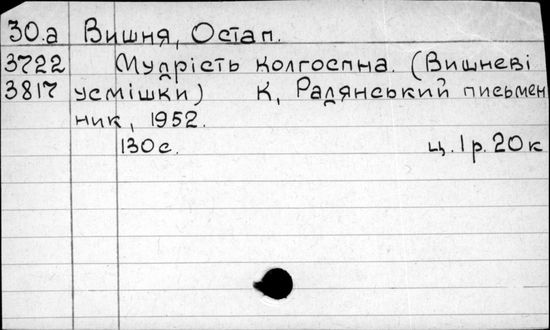 30.а Вишня, Остап.
3722 Мудрість колгоспна. (Вишневі
3817 усмішки) К, Радянський письмен
ник, 1952.
130с. ц. 1р. 20к